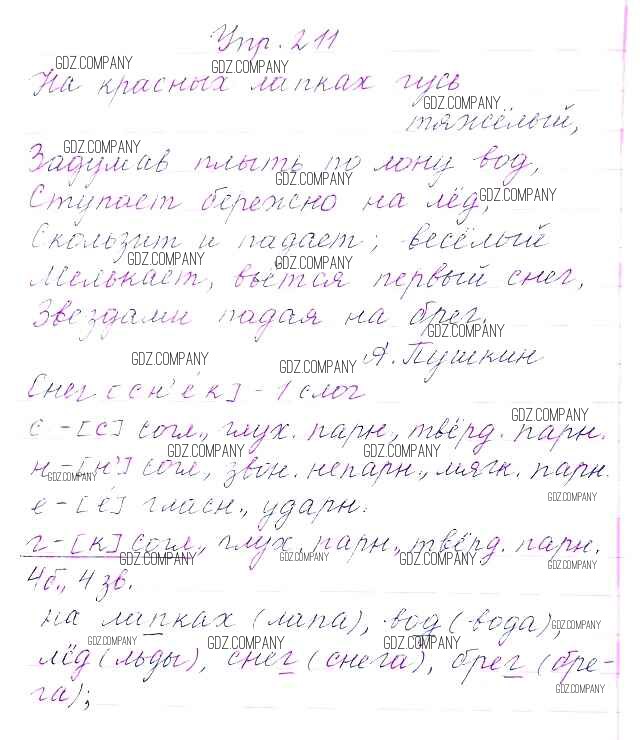 Упр. 211
GDZ.COMPANY GDZ.COMPANY
На красных лапках гусь
GDZ.COMPANY
тяжёлый,
GDZ.COMPANY
Задумав плыть по лону вод,
GDZ.COMPANY
Ступает бережно на лёд,
GDZ.COMPANY
Скользит и падает; весёлый
GDZ.COMPANY GDZ.COMPANY
Мелькает, вьётся первый снег,
Звездами падая на брег.
GDZ.COMPANY
А. Пушкин
GDZ.COMPANY GDZ.COMPANY
Снег [сн'ék] - 1 слог
GDZ.COMPANY
с - [с] согл., глух. парн., твёрд. парн.
GDZ.COMPANY GDZ.COMPANY
н - [н'] согл, звон. непарн., мягк. парн.
GDZ.COMPANY GDZ.COMPANY
е - [é] гласн., ударн.
г - [к] согл., глух, парн., твёрд. парн.
GDZ.COMPANY GDZ.COMPANY GDZ.COMPANY GDZ.COMPANY
4б., 4 зв.
на лапках (лапа), вод (вода),
GDZ.COMPANY
GDZ.COMPANY GDZ.COMPANY GDZ.COMPANY
лёд (льды), снег (снега), брег (бре-
GDZ.COMPANY
га);